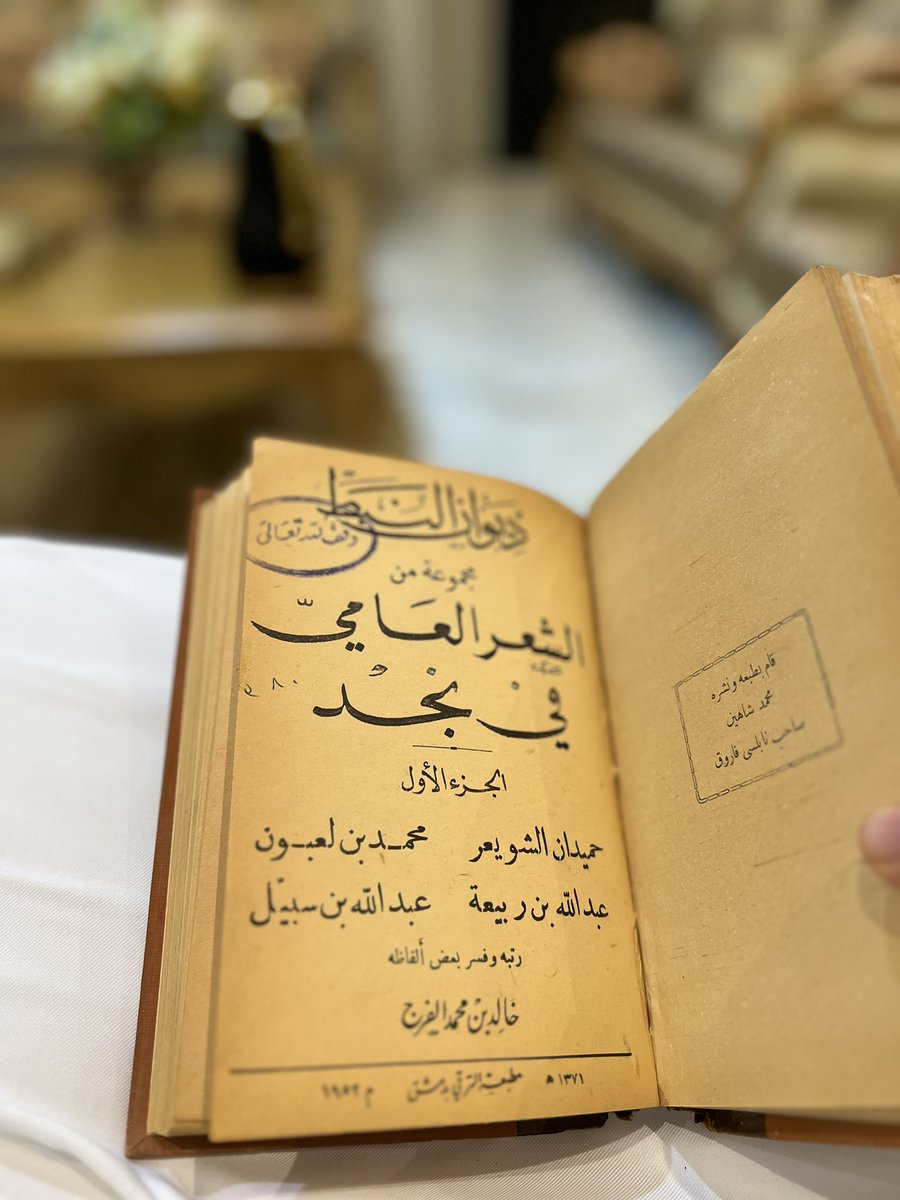 ديوان النبط
وقف لله تعالى
مجموعة من
الشعر العامي
في نجد
الجزء الأول
حميدان الشويعر محمد بن لعبون
عبد الله بن ربيعة عبد الله بن سبيّل
رتبه وفسر بعض ألفاظه
خالد بن محمد الفرج
١٣٧١ هـ مطبعة الترقي بدمشق ١٩٥٢ م
قام بطبعه ونشره
محمد شاهين
صاحب نابلسي فاروق